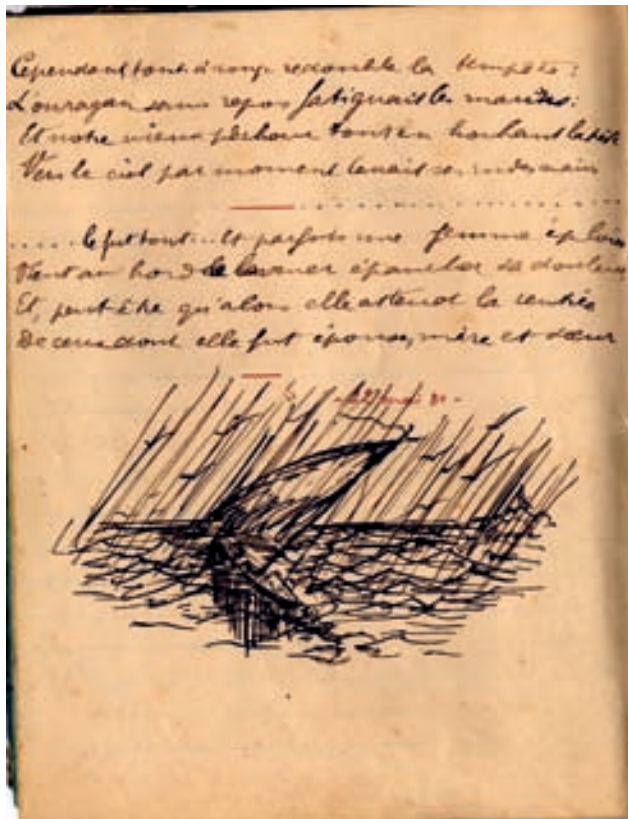 Cependant tout à coup redouble la tempête :
L'ouragan sans repos fatiguait les marins :
Et notre vieux pêcheur tout en hochant la tête
Vers le ciel par moment levait ses rudes mains
..... Ce fut tout... Et parfois une femme éplorée
Vient au bord de la mer épancher sa douleur
Et, peut-être qu'alors elle attend la rentrée
De ceux dont elle fut épouse, mère et sœur